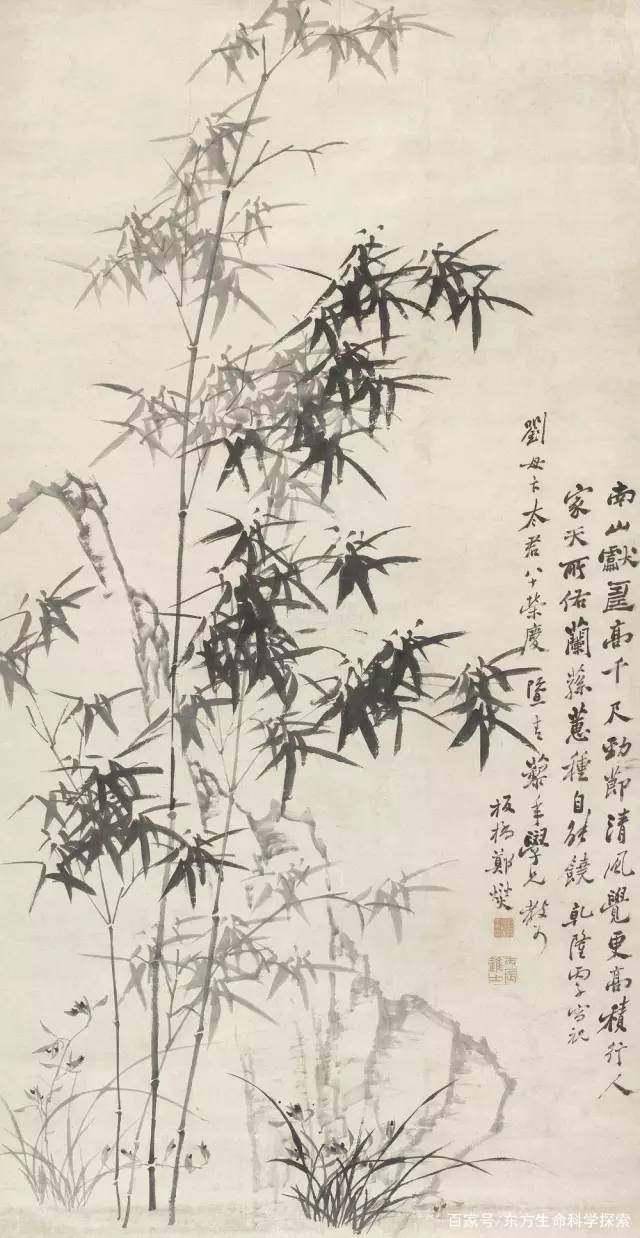 南山獻壽高千尺勁節清風覺更高積行人
家天所佑蘭蓀蕙種自能饒 乾隆丙子寫祝
劉母卞太君八十榮慶 暨青藜年學兄教可
板橋鄭燮
丙辰進士
百家号/东方生命科学探索